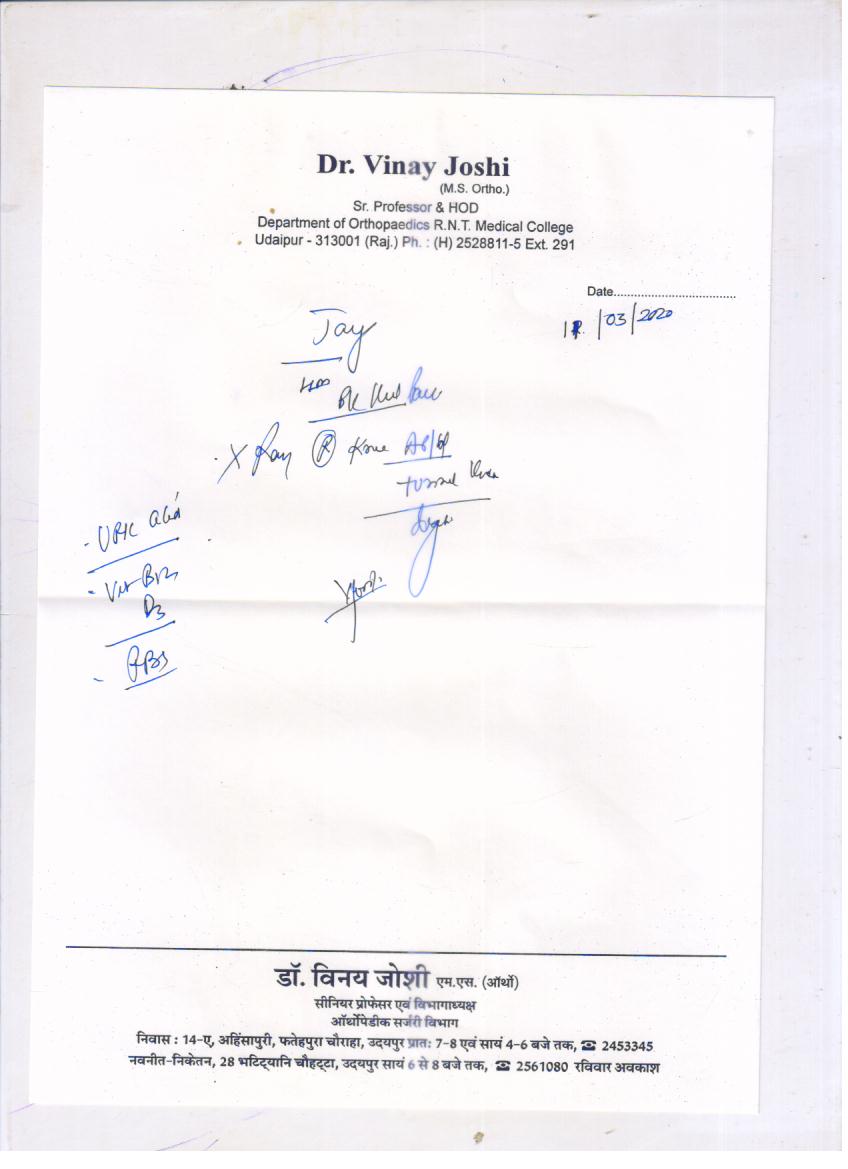 Dr. Vinay Joshi
(M.S. Ortho.)
Sr. Professor & HOD
Department of Orthopaedics R.N.T. Medical College
Udaipur - 313001 (Raj.) Ph. : (H) 2528811-5 Ext. 291
Date....................................
/03/2020
Jay
X Ray R Knee AP/
- Vit B12
D3
डॉ. विनय जोशी एम.एस. (ऑर्थो)
सीनियर प्रोफेसर एवं विभागाध्यक्ष
ऑर्थोपेडीक सर्जरी विभाग
निवास : 14-ए, अहिंसापुरी, फतेहपुरा चौराहा, उदयपुर प्रातः 7-8 एवं सायं 4-6 बजे तक, ☎ 2453345
नवनीत-निकेतन, 28 भटि्यानि चौहट्टा, उदयपुर सायं 6 से 8 बजे तक, ☎ 2561080 रविवार अवकाश